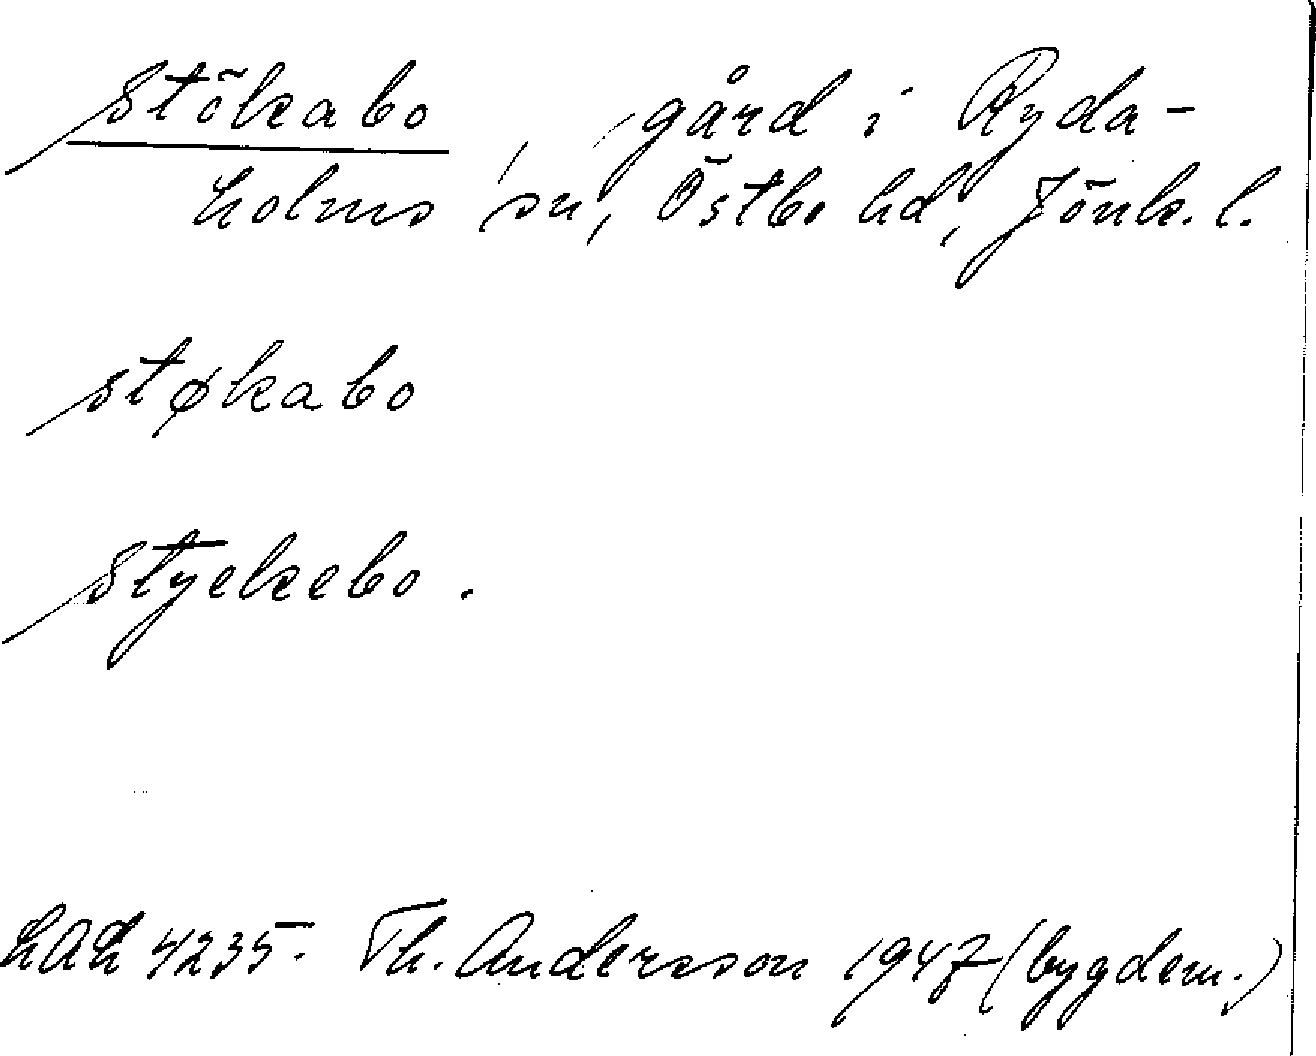 Stökabo, gård i Ryda-
holms sn, Östbo hd, Jönk. l.
støkabo
Styekebo.
LAL 4235. Th. Andersson 1947 (bygdem.)